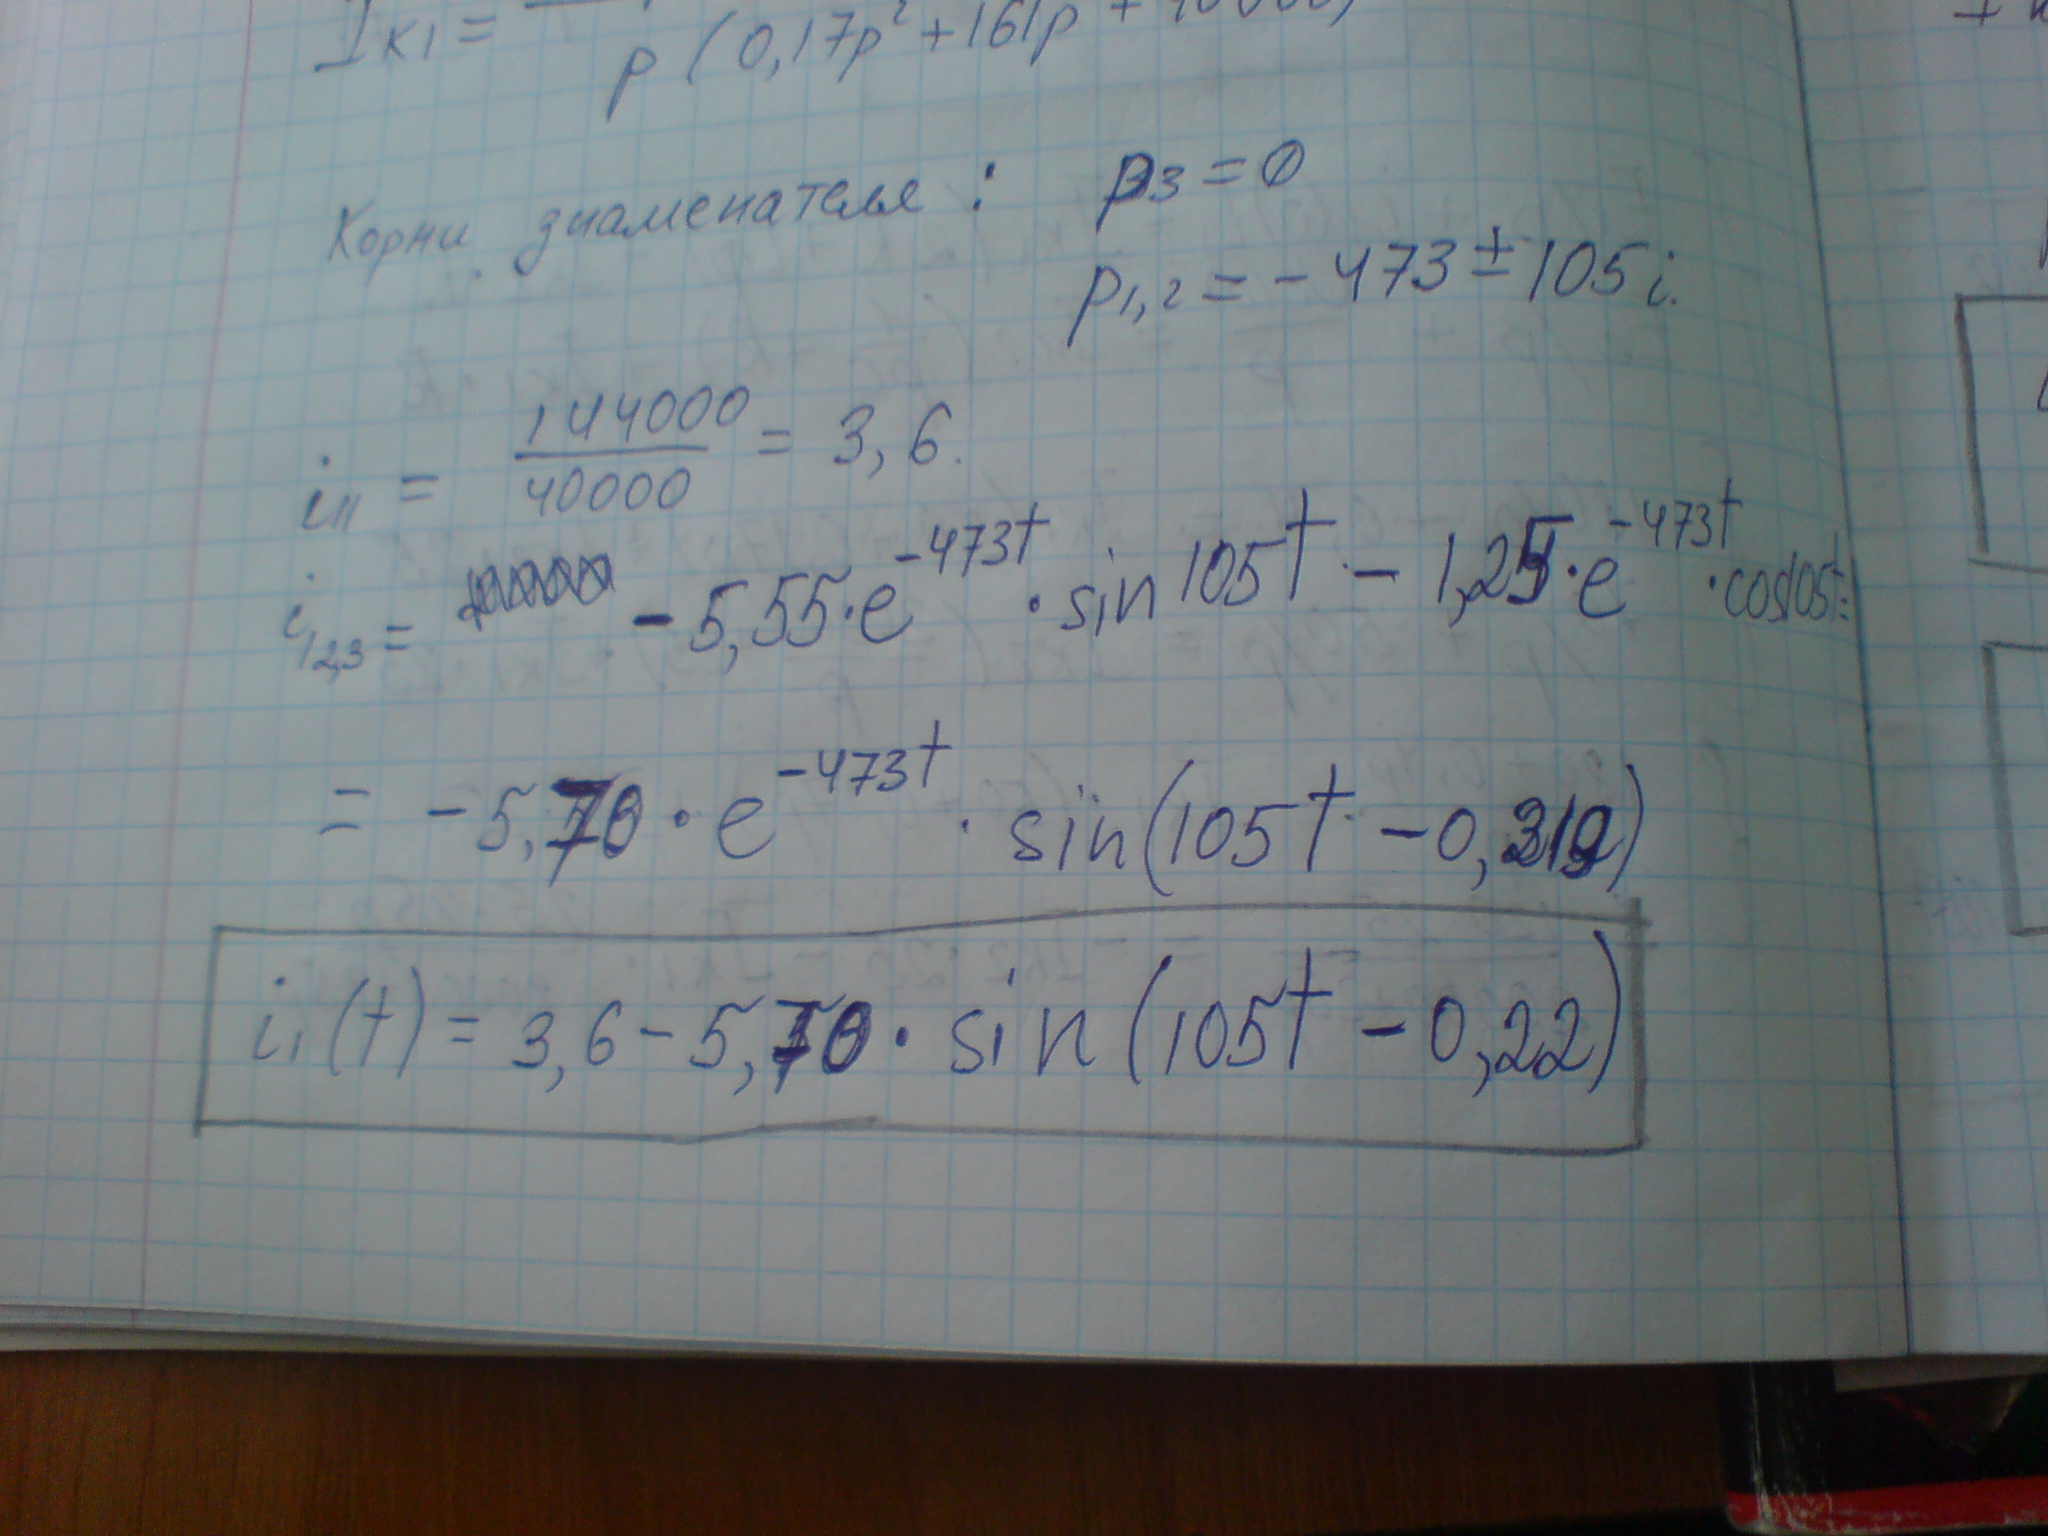 Iк1 =
p (0,17p² + 161p + 40000)
Корни знаменателя : p3 = 0
p1,2 = - 473 ± 105 i.
i11 = 144000/40000 = 3,6.
i12,3 = - 5,55·e^-473t · sin 105t - 1,25·e^-473t · cos105t =
= - 5,70 · e^-473t · sin(105t - 0,219)
i1(t) = 3,6 - 5,70 · sin(105t - 0,22)